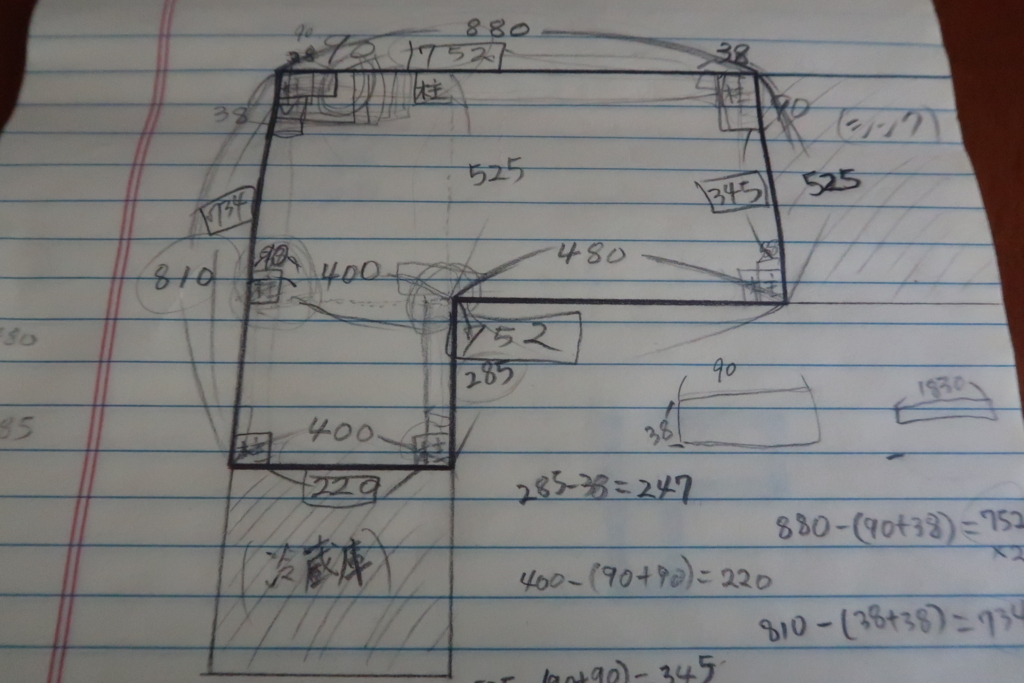 880
90
90
752
38
柱
柱
38
90
(=,-,ワ)
525
345
525
734
810
90
400
480
柱
柱
752
285
80
85
90
38
1830
柱
400
柱
229
(冷蔵庫)
285-38=247
880-(90+38)=752
×2
400-(90+90)=220
810-(38+38)=734
(90+90)-345